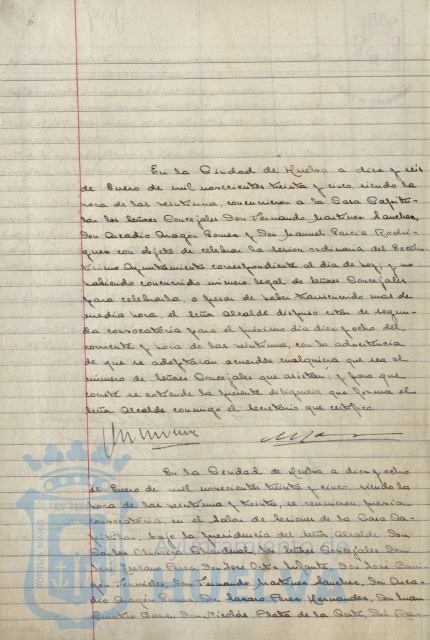 En la Ciudad de Huelva a diez y seis
de Enero de mil novecientos treinta y cinco, siendo la
hora de las veintiuna, concurrieron a la Casa Capitu-
lar los señores Concejales Don Fernando Martinez Sanchez,
Don Arcadio Aragón Gomez y Don Manuel Garcia Rodri-
guez con objeto de celebrar la sesion ordinaria del Excelen-
tisimo Ayuntamiento correspondiente al dia de hoy, y no
habiendo concurrido número legal de señores Concejales
para celebrarla, a pesar de haber transcurrido mas de
media hora, el señor Alcalde dispuso citar de segun-
da convocatoria para el próximo dia diez y ocho del
corriente y hora de las veintiuna, con la advertencia
de que se adoptarán acuerdos cualquiera que sea el
número de señores Concejales que asistan; y para que
conste se extiende la presente diligencia que firma el
señor Alcalde conmigo el Secretario que certifico.
En la Ciudad de Huelva a diez y ocho
de Enero de mil novecientos treinta y cinco, siendo la
hora de las veintiuna y treinta, se reunieron, previa
convocatoria, en el Salon de Sesiones de la Casa Ca-
pitular, bajo la Presidencia del señor Alcalde, Don
Carlos Oliveira, los señores Concejales Don
José Don José Ortiz Infante, Don José
Don Fernando Martinez Sanchez, Don Arca-
dio Aragón Gomez, Don Perez Hernandez, Don Juan
Quintero Baez, Don Nicolás de la Corte, Don